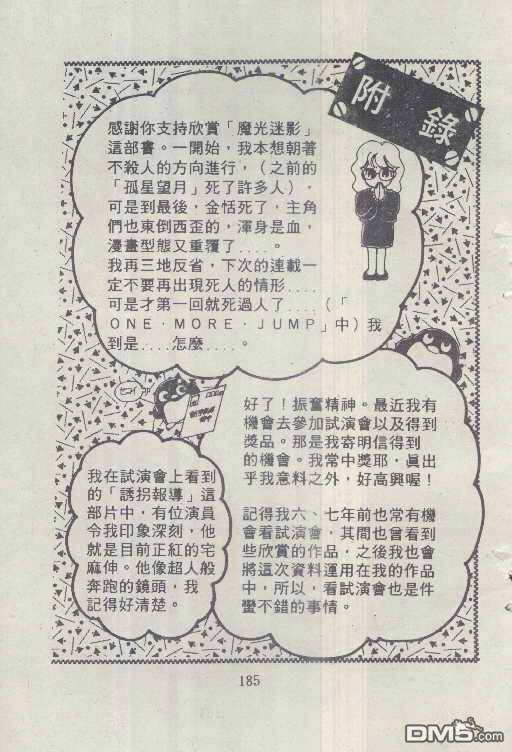 附錄
感謝你支持欣賞「魔光迷影」
這部書。一開始，我本想朝著
不殺人的方向進行，（之前的
「孤星望月」死了許多人），
可是到最後，金恬死了，主角
們也東倒西歪的，渾身是血，
漫畫型態又重覆了....。
我再三地反省，下次的連載一
定不要再出現死人的情形....
可是才第一回就死過人了....（「
ONE·MORE·JUMP」中）我
到是....怎麼....。
好了！振奮精神。最近我有
機會去參加試演會以及得到
獎品。那是我寄明信得到
的機會。我常中獎耶，真出
乎我意料之外，好高興喔！
記得我六、七年前也常有機
會看試演會，其間也曾看到
些欣賞的作品，之後我也會
將這次資料運用在我的作品
中，所以，看試演會也是件
蠻不錯的事情。
我在試演會上看到
的「誘拐報導」這
部片中，有位演員
令我印象深刻，他
就是目前正紅的宅
麻伸。他像超人般
奔跑的鏡頭，我
記得好清楚。
185
DM5.com